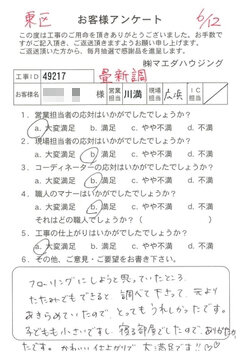 東区
6/12
お客様アンケート
この度は工事のご用命を頂きありがとうございました。お手数で
すがご記入頂き、ご返送頂きますようお願い申し上げます。
ご返送頂いた方から、毎月抽選で感謝品を進呈します。
㈱マエダハウジング
工事ID 49217 畳新調
お客様名 様 営業担当 川満 現場担当 大浜 IC
1．営業担当者の応対はいかがでしたでしょうか？
a. 大変満足 b. 満足 c. やや不満 d. 不満
2．現場担当者の応対はいかがでしたでしょうか？
a. 大変満足 b. 満足 c. やや不満 d. 不満
3．コーディネーターの応対はいかがでしたでしょうか？
a. 大変満足 b. 満足 c. やや不満 d. 不満
4．職人のマナーはいかがでしたでしょうか？
a. 大変満足 b. 満足 c. やや不満 d. 不満
それはどの職人でしょうか？（ ）
5．工事の仕上がりはいかがでしたでしょうか？
a. 大変満足 b. 満足 c. やや不満 d. 不満
6．その他、ご意見・ご要望をお書き下さい。
フローリングにしようと思っていたところ、
たたみでもできると 調べて下さって、元より
あきらめていたので、とってもうれしかったです。
子どもも小さいですし 寝る部屋でしたので、ありがたかっ
たです。かわいい仕上がりで 大満足です!!